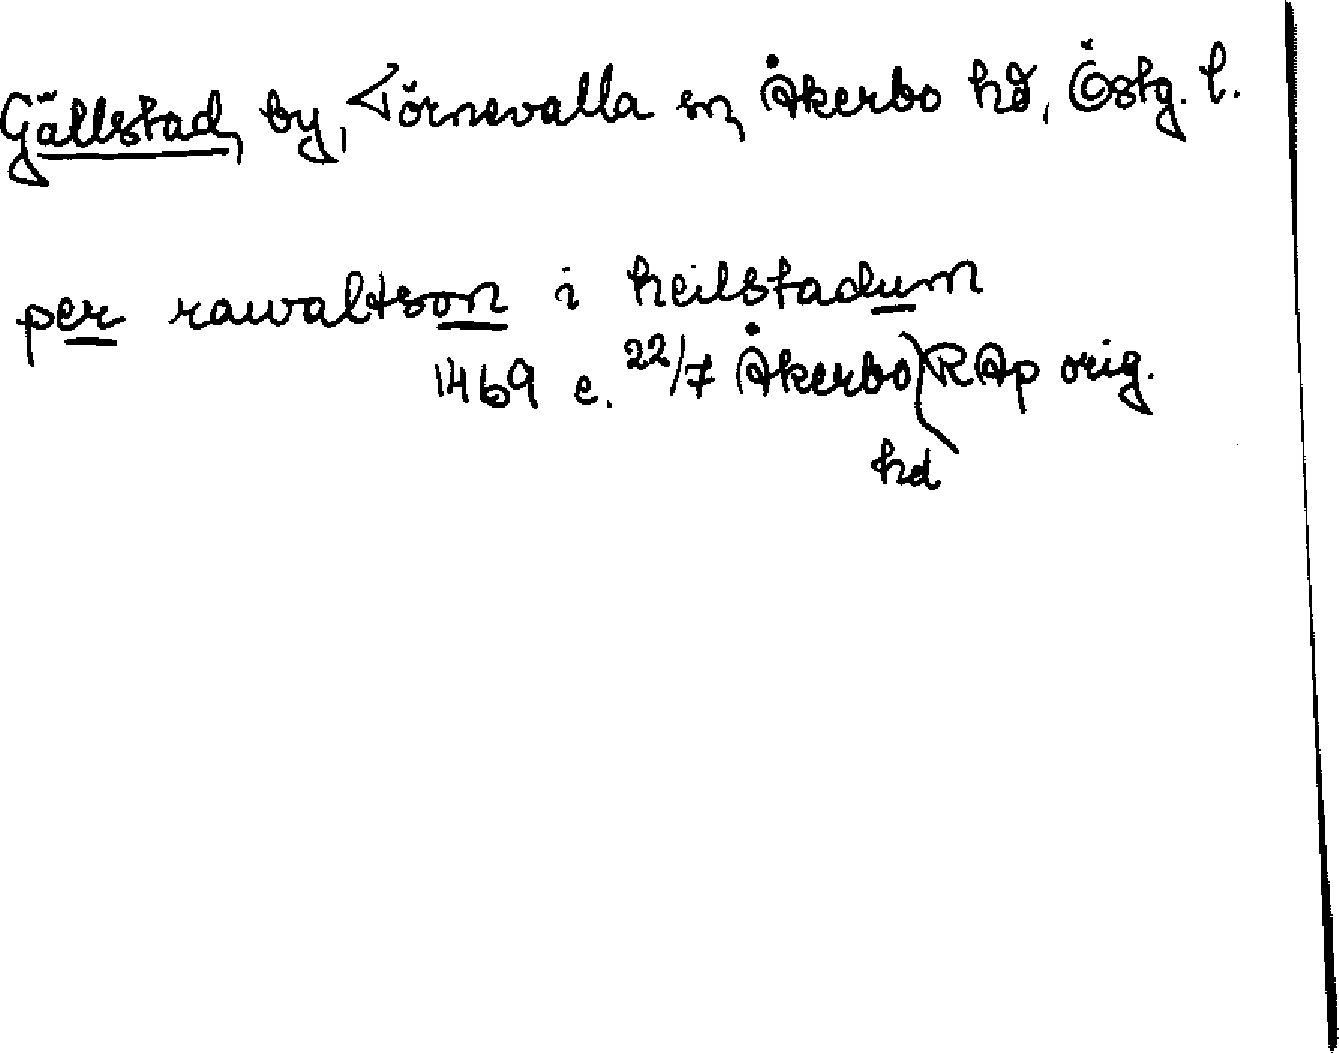 Gällstad, by, Törnevalla sn, Åkerbo hd, Östg. l.
per rawaltson i heilstadum
1469 e. 22/7 Åkerbo hd RAp orig.